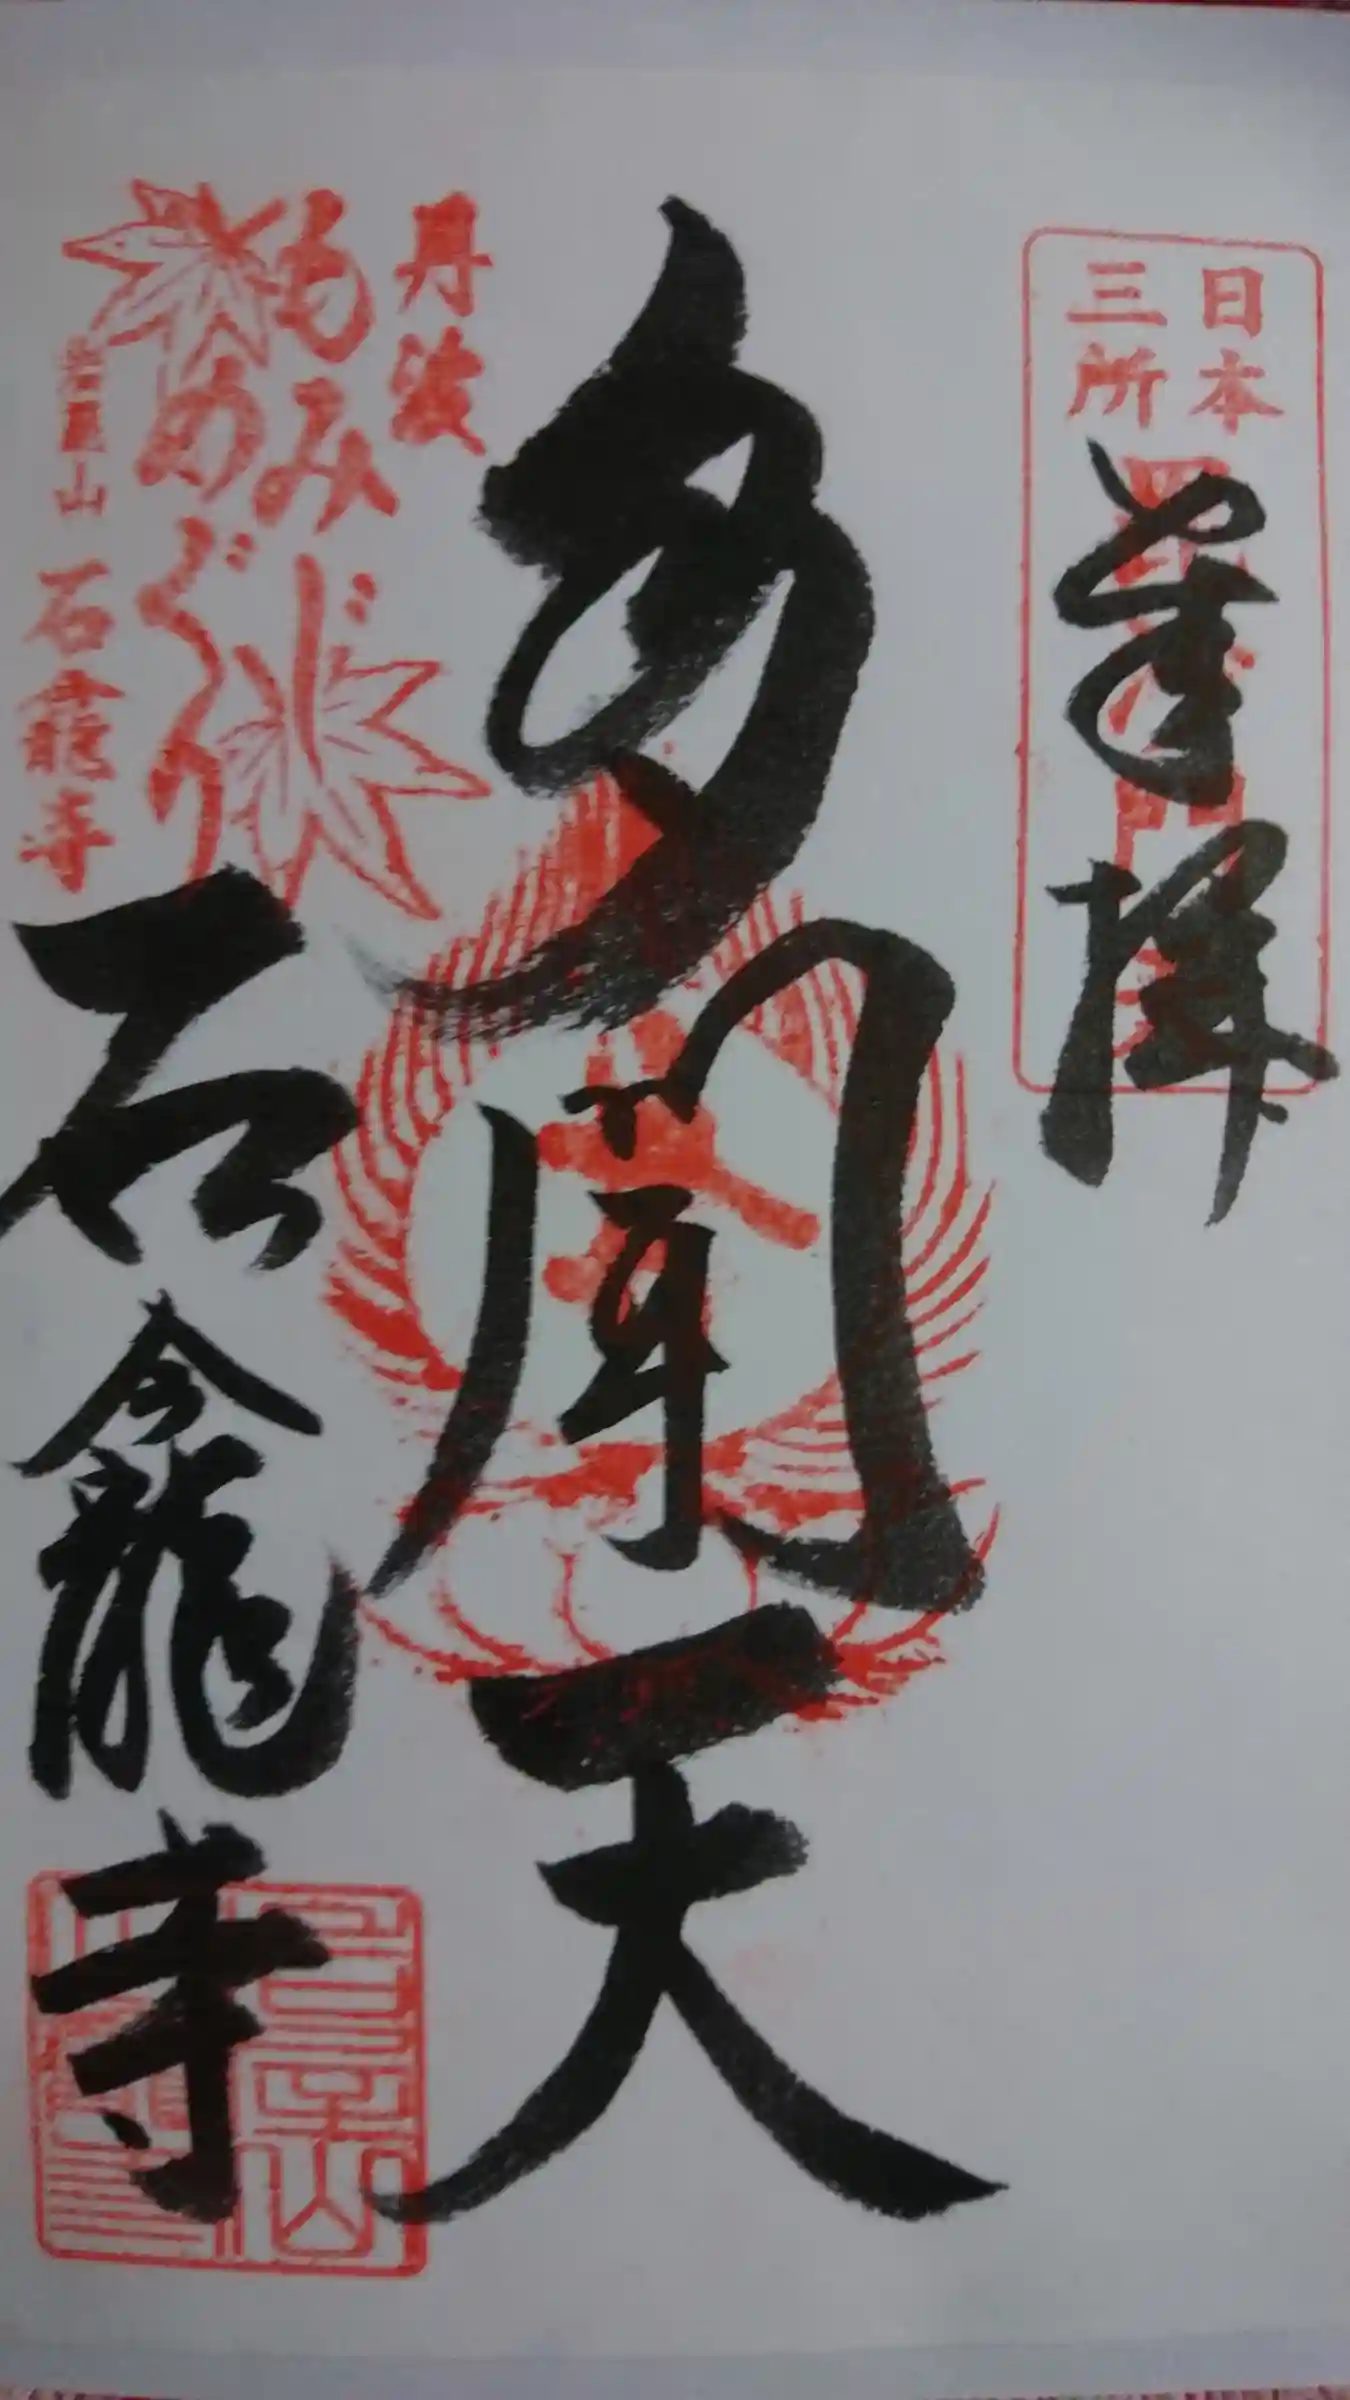 日本
三所
奉拝
多聞天
丹波
もみじ
めぐり
岩屋山 石龕寺
石龕寺